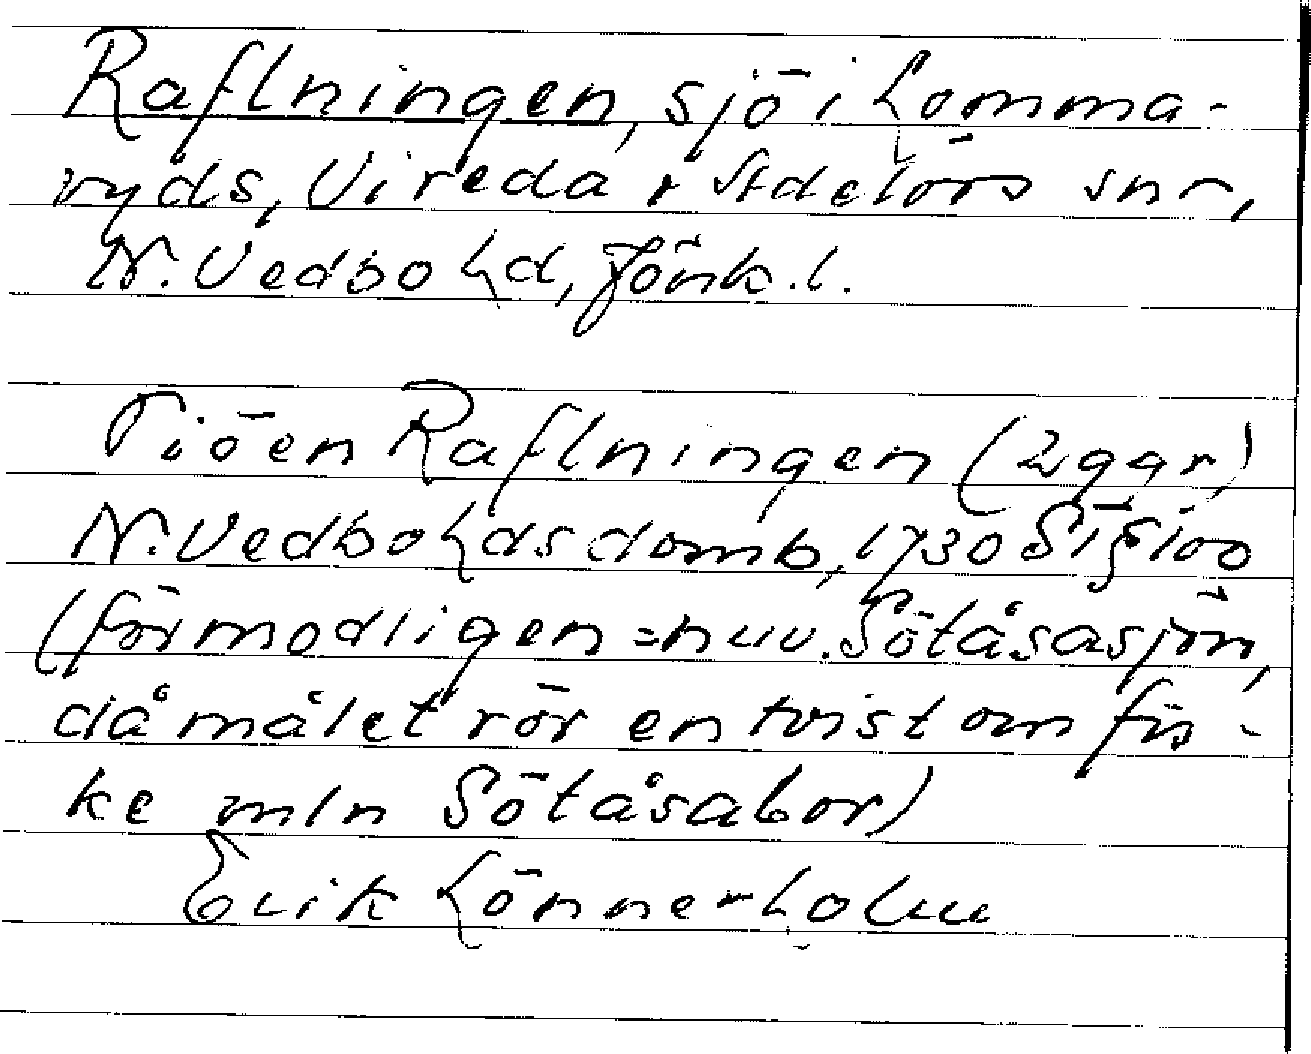 Raflningen, sjö i Lomma-
ryds, Vireda o Adelövs snr,
N. Vedbo hd, Jönk. l.
Siöen Raflningen (2 ggr)
N. Vedbo hds domb, 1730 St § 100
(förmodligen = nuv. Sötåsasjön,
då målet rör en tvist om fis-
ke mln Sötåsabor)
Erik Lönnerholm